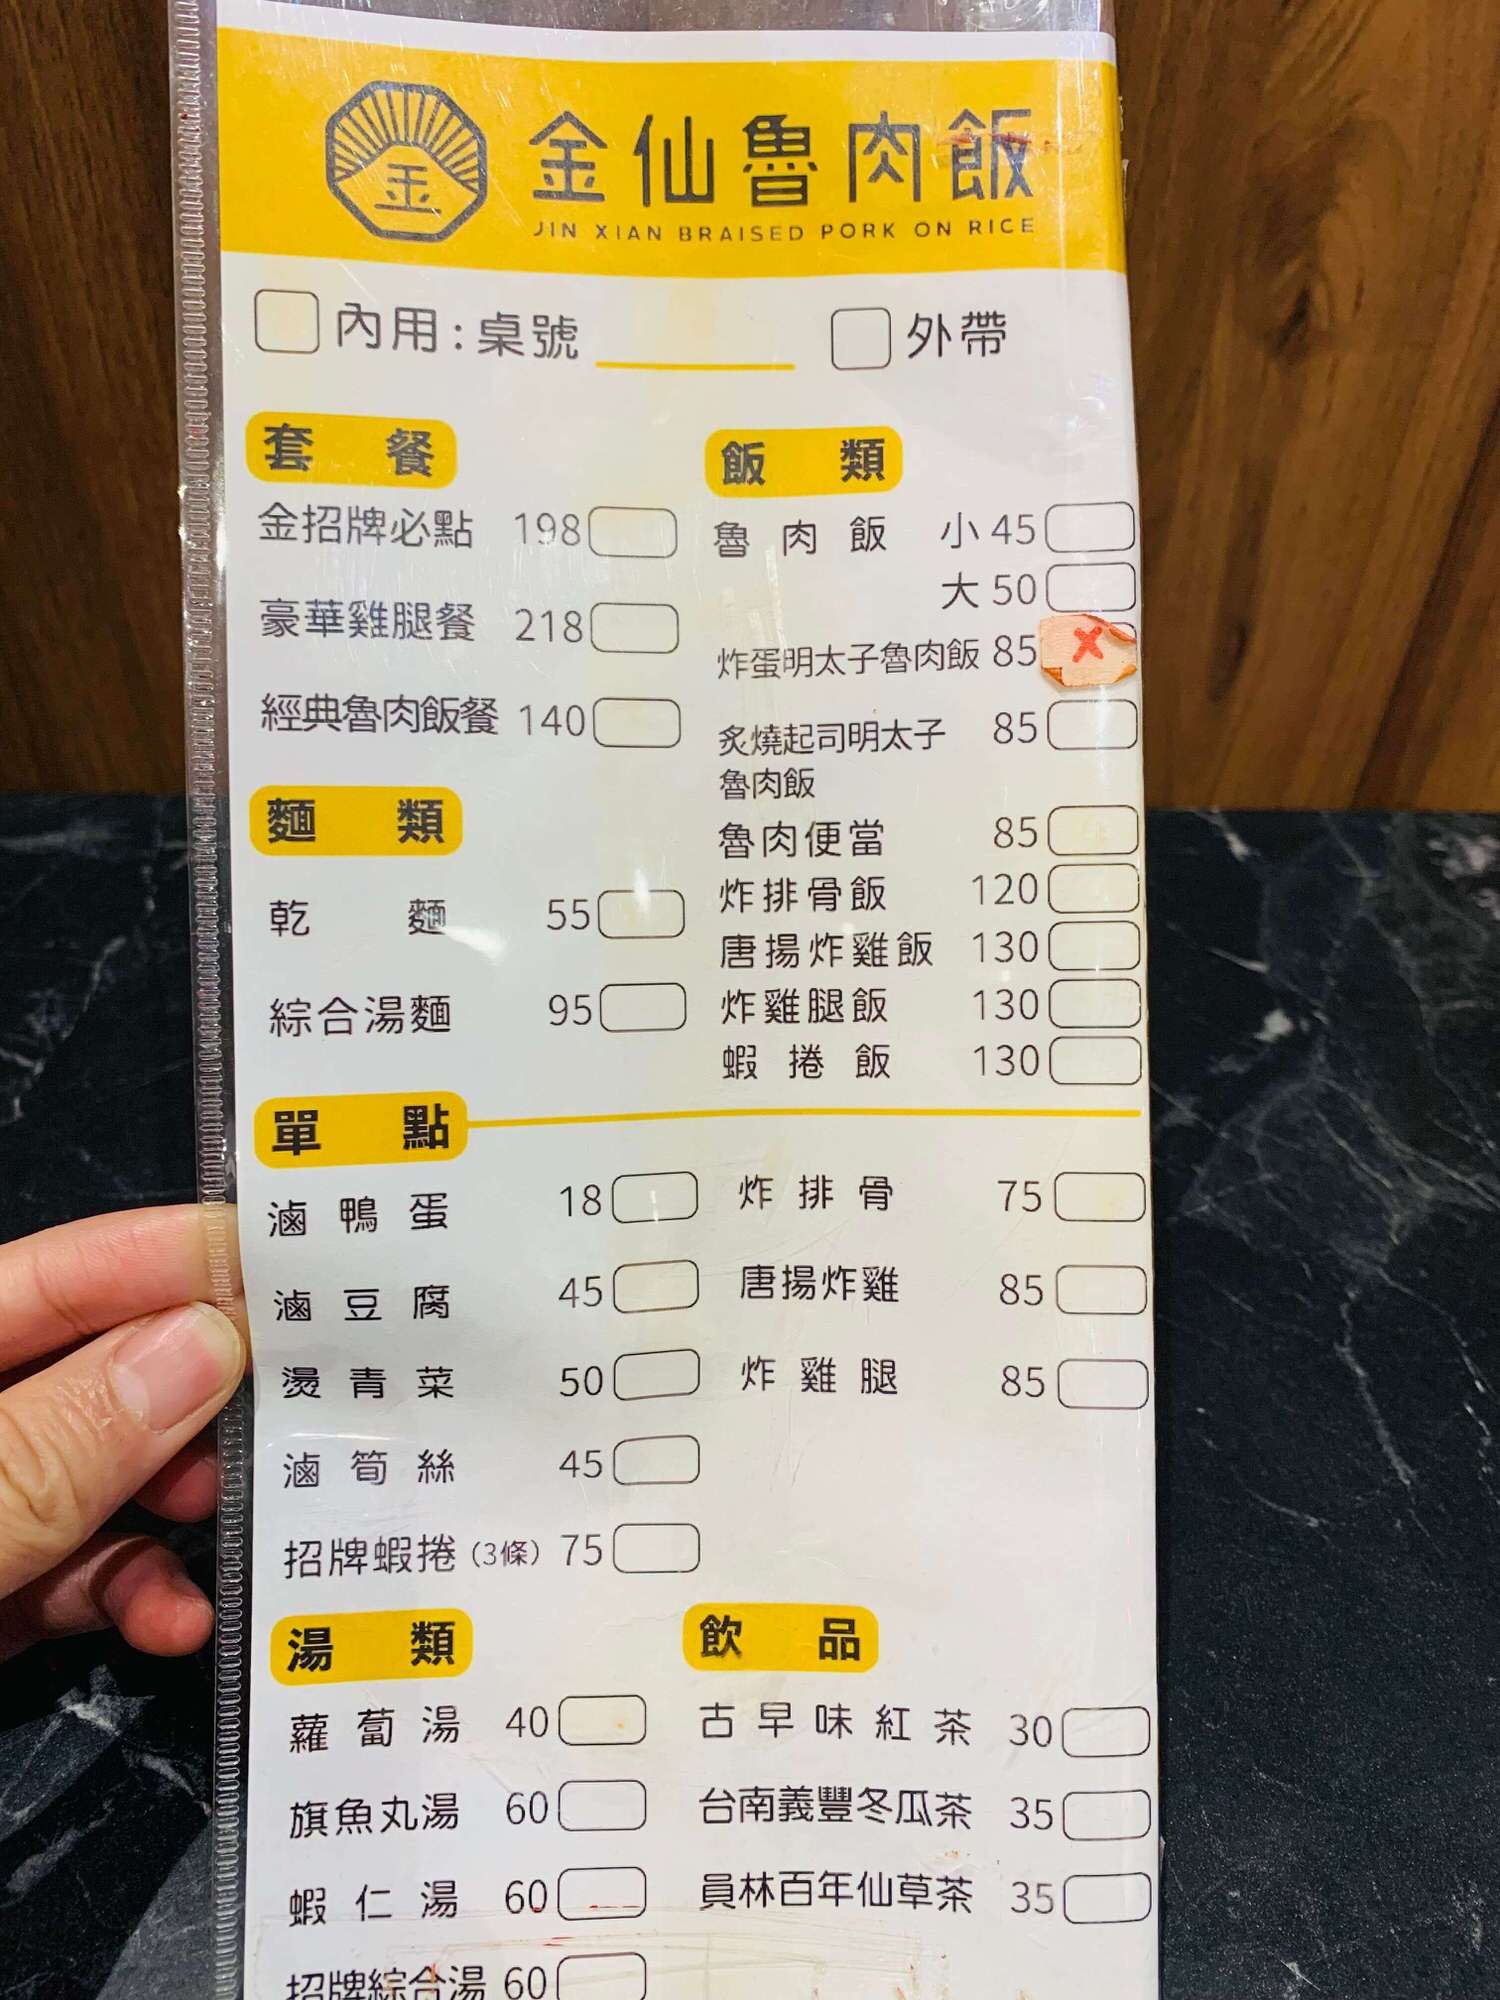 金
金仙魯肉飯
JIN XIAN BRAISED PORK ON RICE
內用:桌號
外帶
套 餐
金招牌必點 198
豪華雞腿餐 218
經典魯肉飯餐 140
飯 類
魯肉飯 小 45
大 50
炸蛋明太子魯肉飯 85 ×
炙燒起司明太子 85
魯肉飯
魯肉便當 85
炸排骨飯 120
唐揚炸雞飯 130
炸雞腿飯 130
蝦捲飯 130
麵 類
乾 麵 55
綜合湯麵 95
單 點
滷鴨蛋 18
滷豆腐 45
燙青菜 50
滷筍絲 45
招牌蝦捲 (3條) 75
炸排骨 75
唐揚炸雞 85
炸雞腿 85
湯 類
蘿蔔湯 40
旗魚丸湯 60
蝦仁湯 60
招牌綜合湯 60
飲 品
古早味紅茶 30
台南義豐冬瓜茶 35
員林百年仙草茶 35